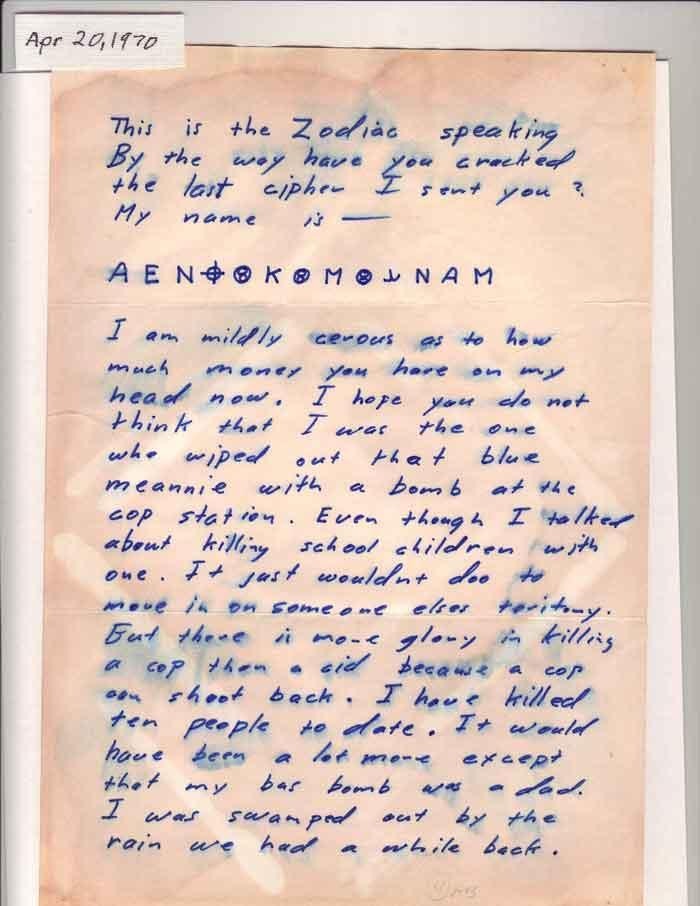 Apr 20, 1970
This is the Zodiac speaking
By the way have you cracked
the last cipher I sent you ?
My name is —
A E N ⌖ ⊗ K ⊗ M ⊗ ⅄ N A M
I am mildly cerous as to how
much money you have on my
head now. I hope you do not
think that I was the one
who wiped out that blue
meannie with a bomb at the
cop station. Even though I talked
about killing school children with
one. It just wouldnt doo to
move in on someone elses teritory.
But there is more glory in killing
a cop than a cid because a cop
can shoot back. I have killed
ten people to date. It would
have been a lot more except
that my bus bomb was a dud.
I was swamped out by the
rain we had a while back.